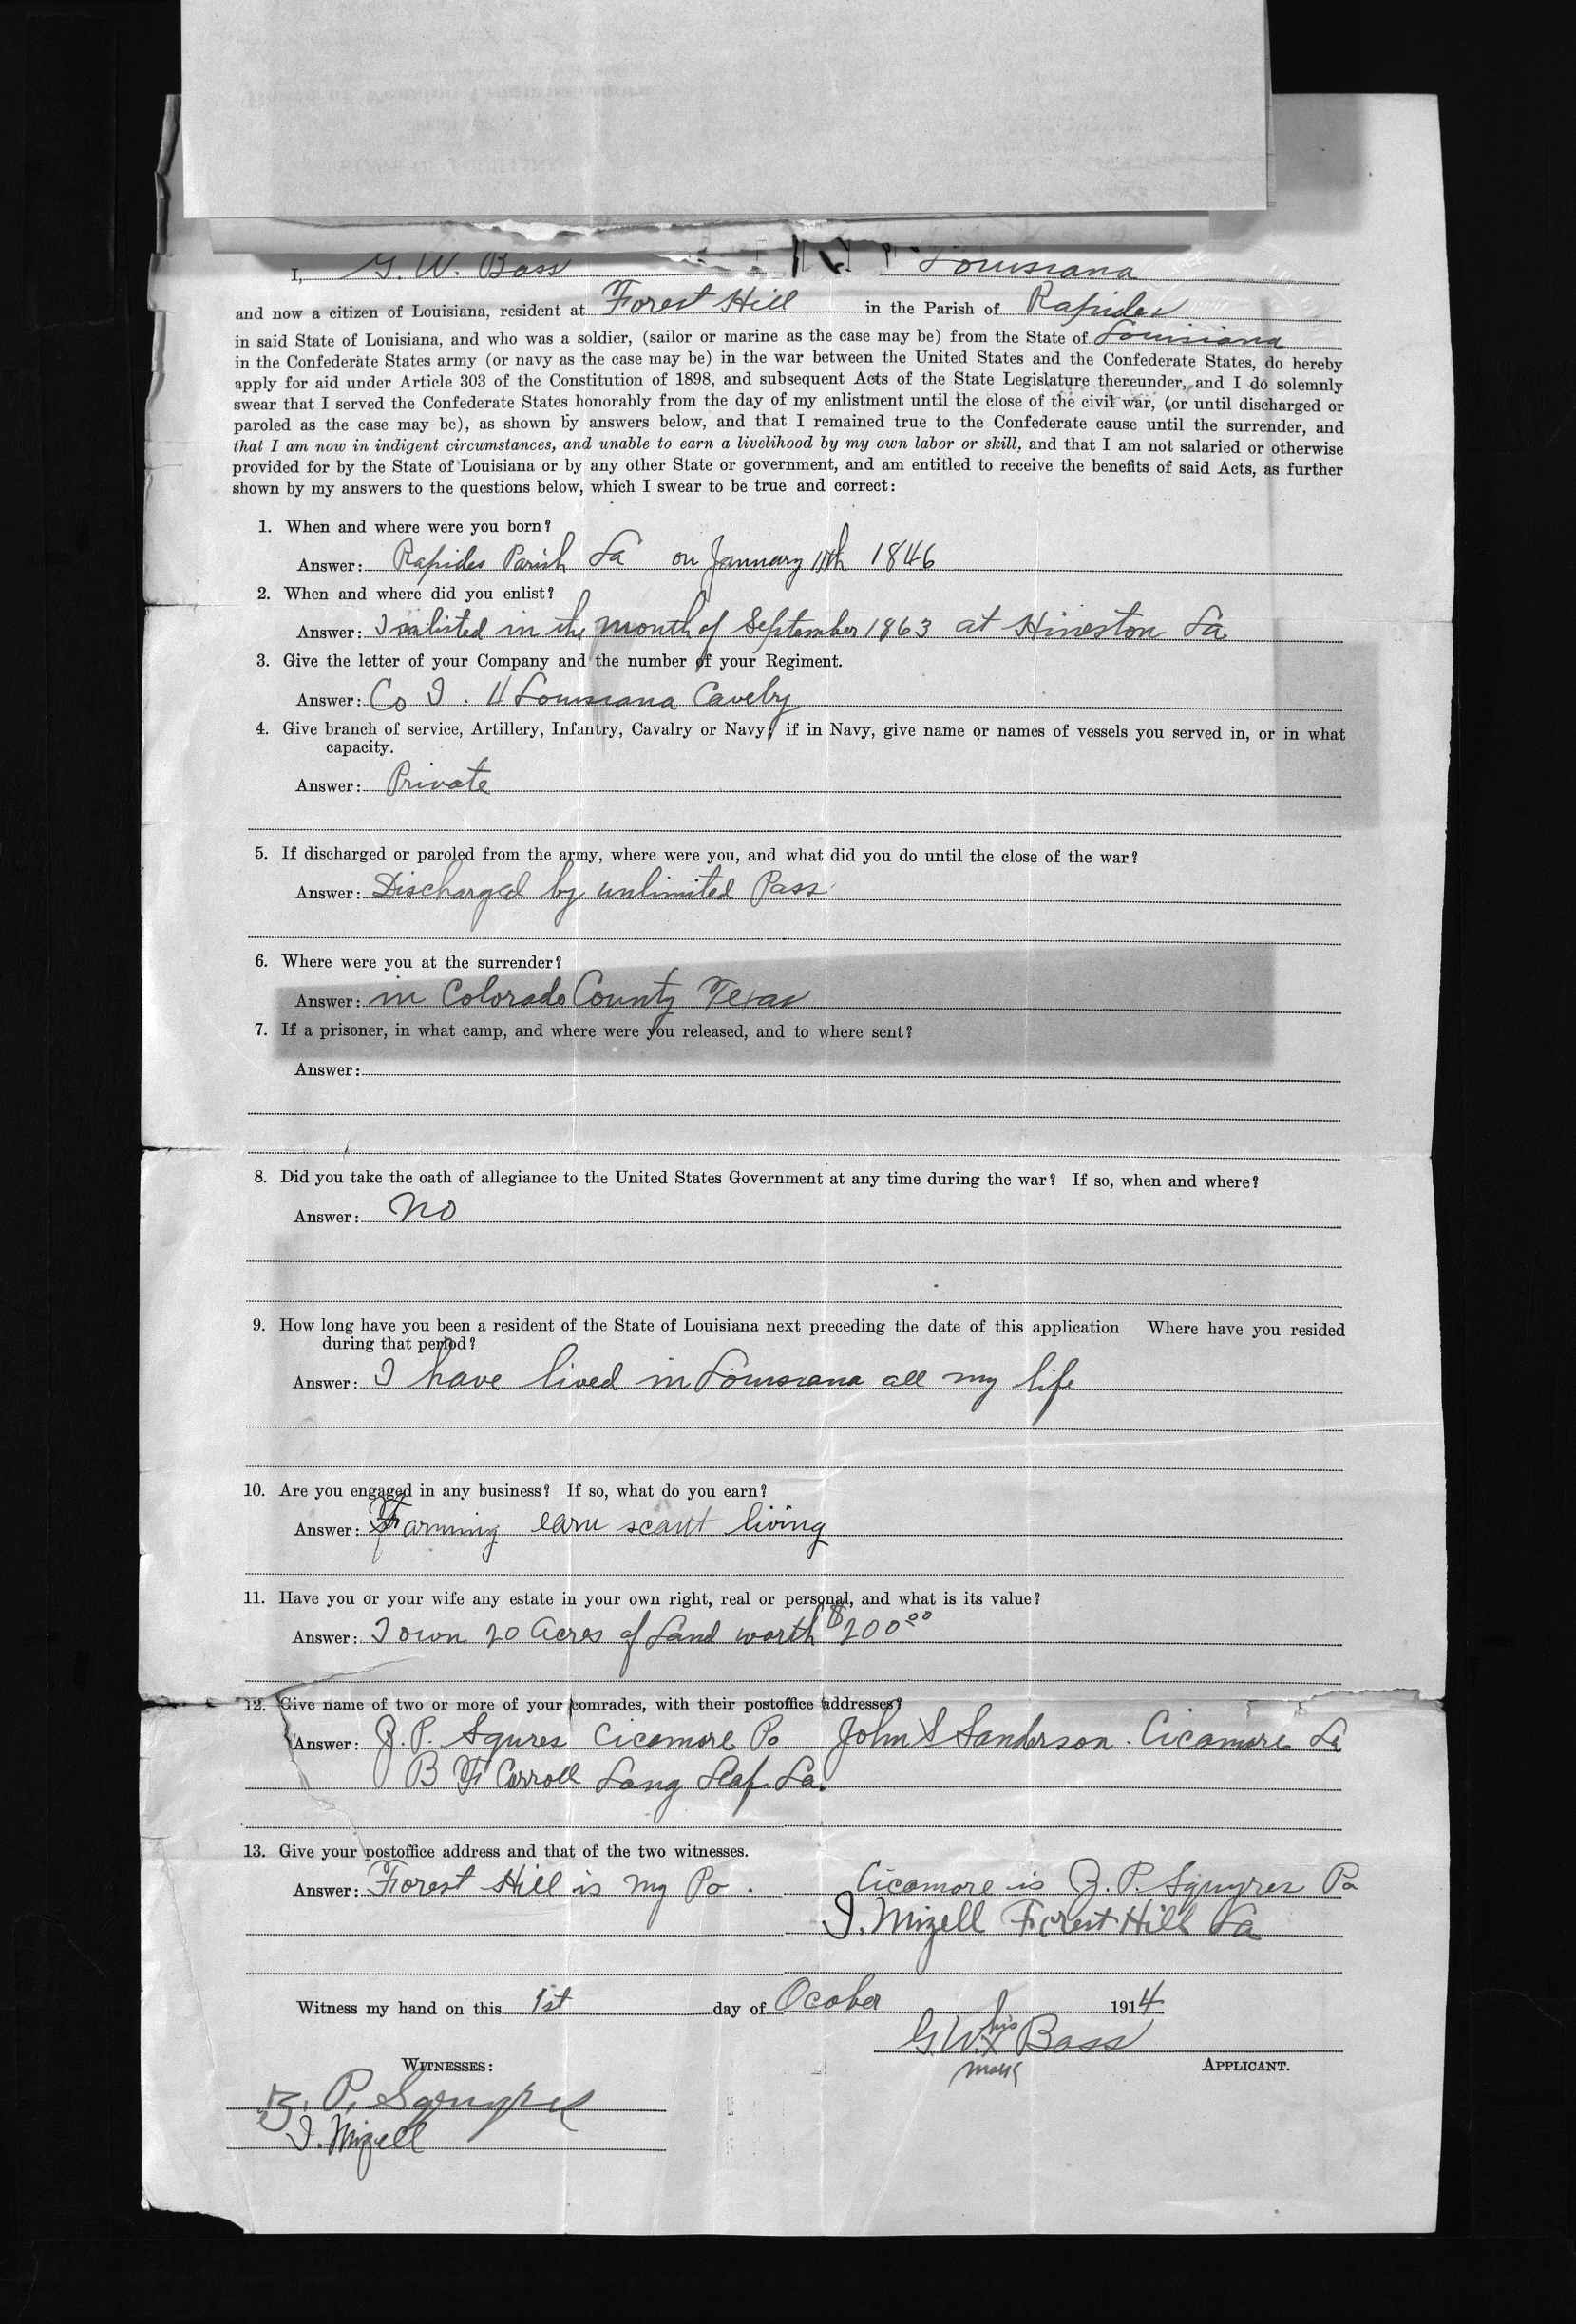 I, G. W. Bass Louisiana
and now a citizen of Louisiana, resident at Forest Hill in the Parish of Rapides
in said State of Louisiana, and who was a soldier, (sailor or marine as the case may be) from the State of Louisiana
in the Confederate States army (or navy as the case may be) in the war between the United States and the Confederate States, do hereby
apply for aid under Article 303 of the Constitution of 1898, and subsequent Acts of the State Legislature thereunder, and I do solemnly
swear that I served the Confederate States honorably from the day of my enlistment until the close of the civil war, (or until discharged or
paroled as the case may be), as shown by answers below, and that I remained true to the Confederate cause until the surrender, and
that I am now in indigent circumstances, and unable to earn a livelihood by my own labor or skill, and that I am not salaried or otherwise
provided for by the State of Louisiana or by any other State or government, and am entitled to receive the benefits of said Acts, as further
shown by my answers to the questions below, which I swear to be true and correct:
1. When and where were you born?
Answer: Rapides Parish La on January 11th 1846
2. When and where did you enlist?
Answer: I enlisted in the month of September 1863 at Hineston La
3. Give the letter of your Company and the number of your Regiment.
Answer: Co I. 4 Louisiana Cavelry
4. Give branch of service, Artillery, Infantry, Cavalry or Navy; if in Navy, give name or names of vessels you served in, or in what
capacity.
Answer: Private
5. If discharged or paroled from the army, where were you, and what did you do until the close of the war?
Answer: Discharged by unlimited Pass
6. Where were you at the surrender?
Answer: in Colorado County Texas
7. If a prisoner, in what camp, and where were you released, and to where sent?
Answer:
8. Did you take the oath of allegiance to the United States Government at any time during the war? If so, when and where?
Answer: No
9. How long have you been a resident of the State of Louisiana next preceding the date of this application Where have you resided
during that period?
Answer: I have lived in Louisiana all my life
10. Are you engaged in any business? If so, what do you earn?
Answer: Farming earn scant living
11. Have you or your wife any estate in your own right, real or personal, and what is its value?
Answer: I own 20 Acres of Land worth $200.00
12. Give name of two or more of your comrades, with their postoffice addresses?
Answer: Z. P. Squres Cicamore Po John S Sanderson. Cicamore La
B F Carroll Long Leaf La.
13. Give your postoffice address and that of the two witnesses.
Answer: Forest Hill is my Po. Cicamore is Z. P. Squyres Po
I. Mizell Forest Hill La
Witness my hand on this 1st day of Ocober 1914
G. W. his x Bass
mark APPLICANT.
WITNESSES:
Z. P. Squyres
I. Mizell